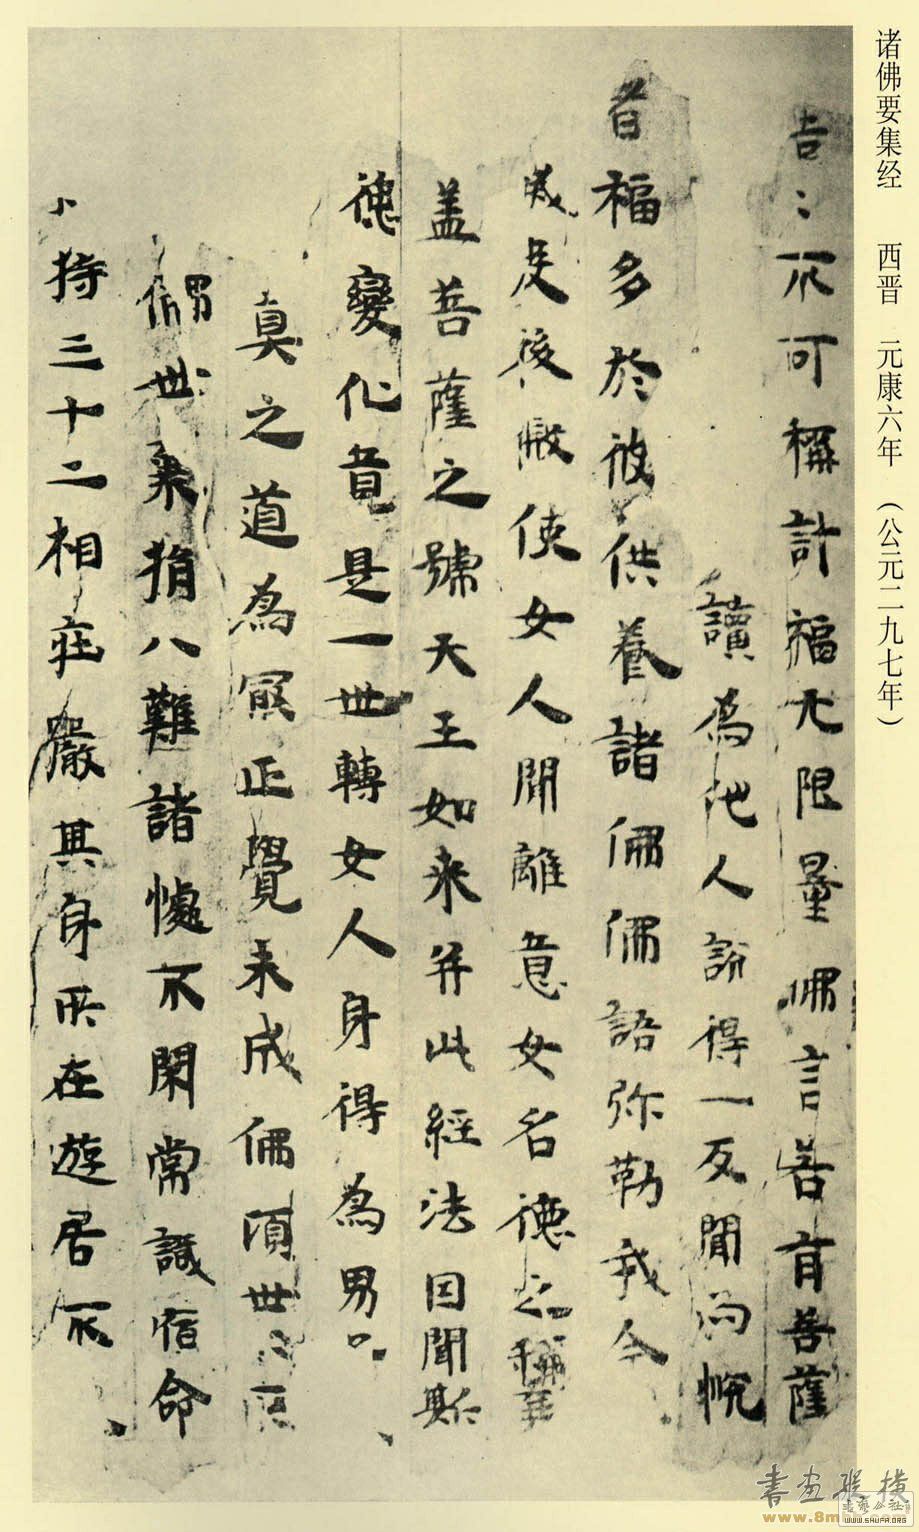 诸佛要集经 西晋 元康六年 (公元二九七年)
吉〻不可稱計福无限量佛言若有菩薩
讀為他人說得一反聞而悅
者福多於彼供養諸佛佛語弥勒我今
囑是後世使女人聞離意女名德之稱
盖菩薩之號天王如来并此經法因聞斯
德變化竟是一世轉女人身得為男〻
真之道為冣正覺未成佛頃世〻
佛世棄捐八難諸惱不閑常識宿命
持三十二相莊嚴其身所在遊居不
書画縱橫
www.8m
www.SHUFA.ORG